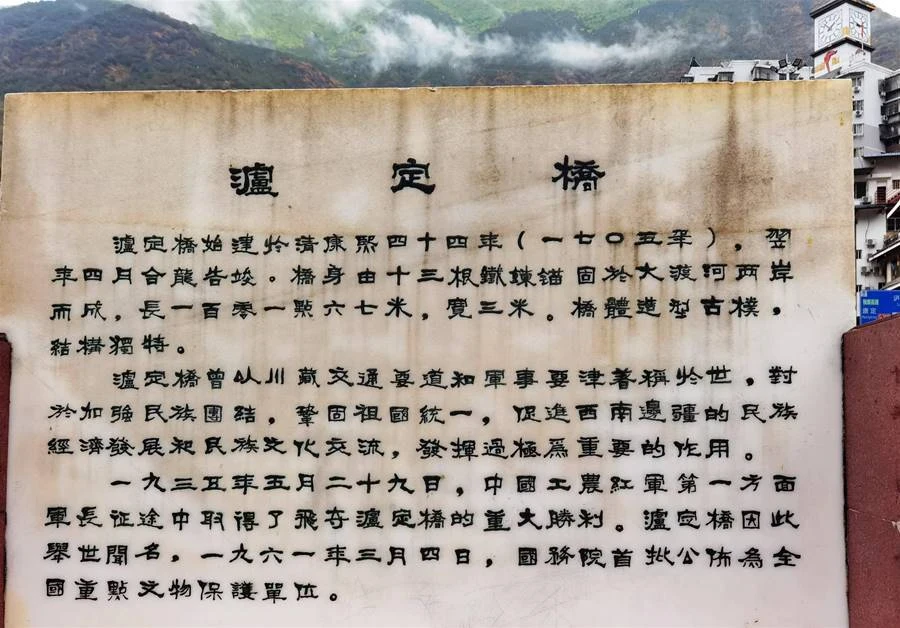 瀘定橋
瀘定橋始建於清康熙四十四年（一七〇五年），翌
年四月合龍告竣。橋身由十三根鐵鍊錨固於大渡河两岸
而成，長一百零一點六七米，寬三米。橋體造型古樸，
結構獨特。
瀘定橋曾以川藏交通要道和軍事要津著稱於世，對
於加強民族團結，鞏固祖國統一，促進西南邊疆的民族
經濟發展和民族文化交流，發揮過極爲重要的作用。
一九三五年五月二十九日，中國工農紅軍第一方面
軍長征途中取得了飛夺瀘定橋的重大勝利。瀘定橋因此
舉世聞名，一九六一年三月四日，國務院首批公佈為全
國重點文物保護單位。